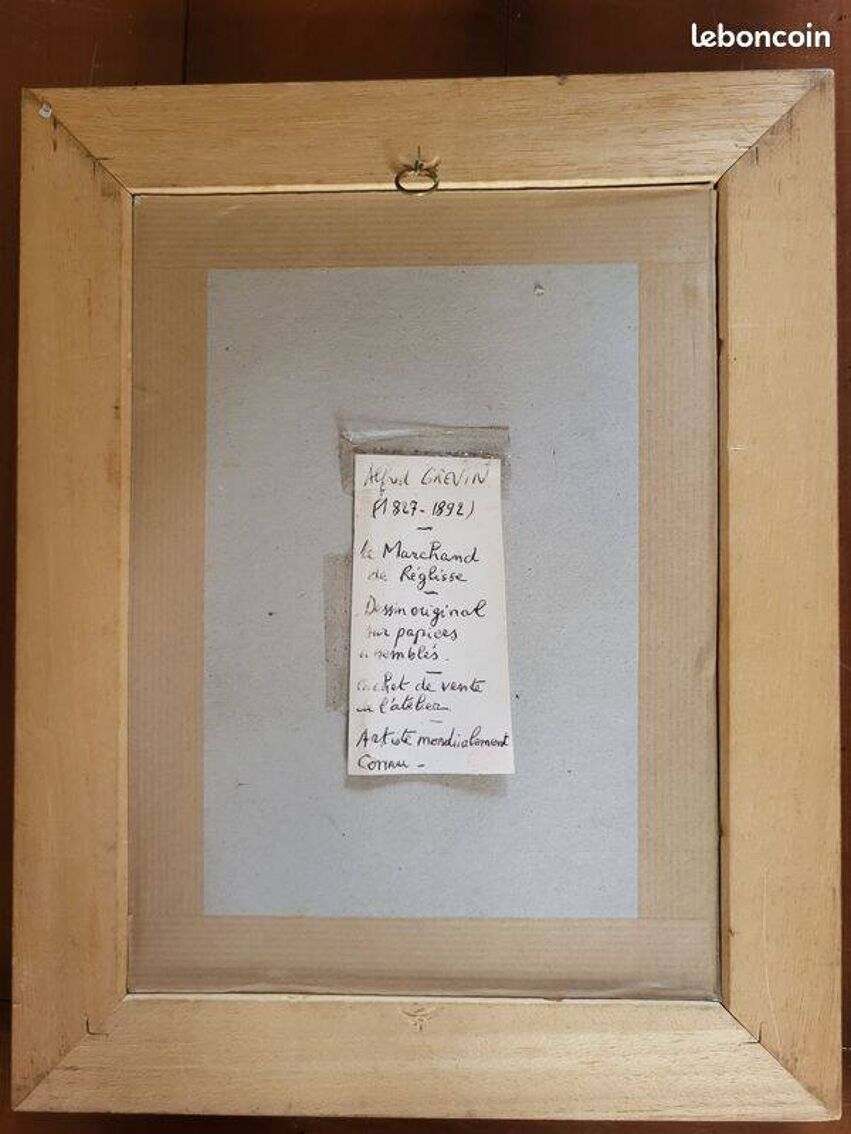 leboncoin
Alfred GREVIN
(1827-1892)
le Marchand
de Réglisse
Dessin original
sur papiers
assemblés.
cachet de vente
de l'atelier
Artiste mondialement
Connu -